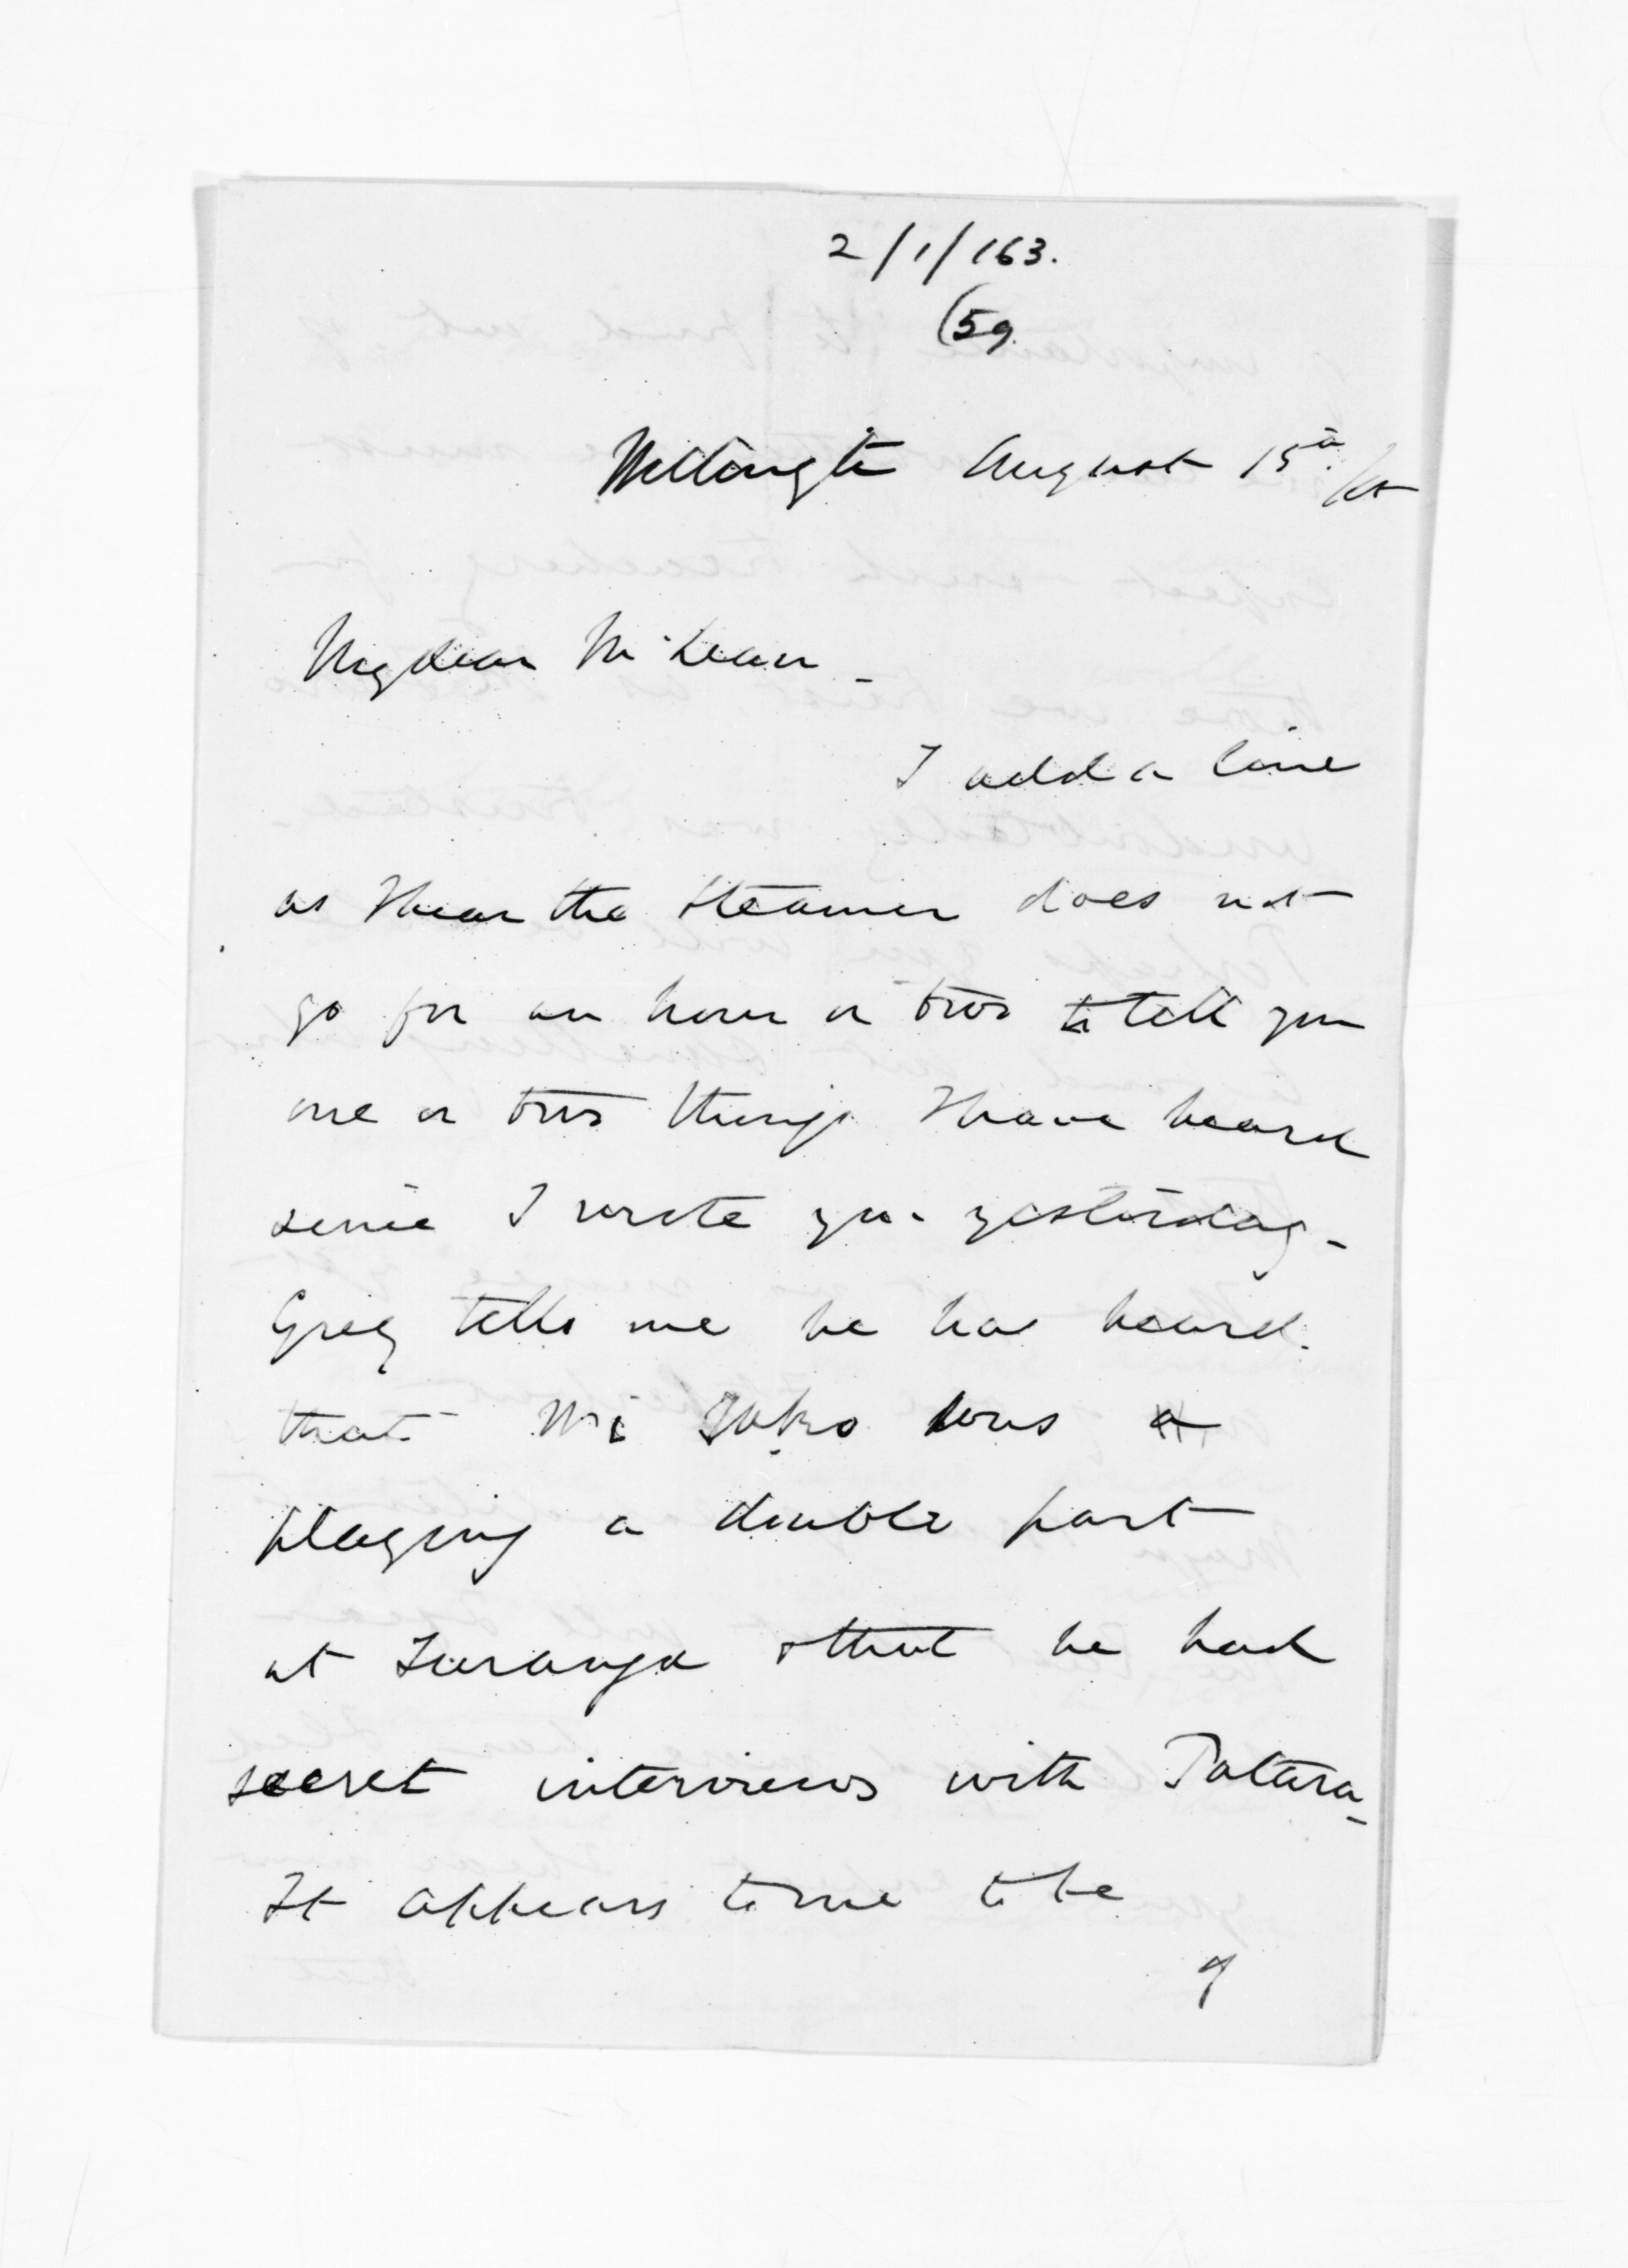 2/1/163.
(59.
Wellington August 15th /65
My dear McLean _
I add a line
as I hear the steamer does not
go for an hour or two to tell you
one or two things I have heard
since I wrote you yesterday _
Grey tells me he has heard.
that Wi Tako was
playing a double part
at Turanga & that he had
secret interviews with Patara _
It appears to me to be
of